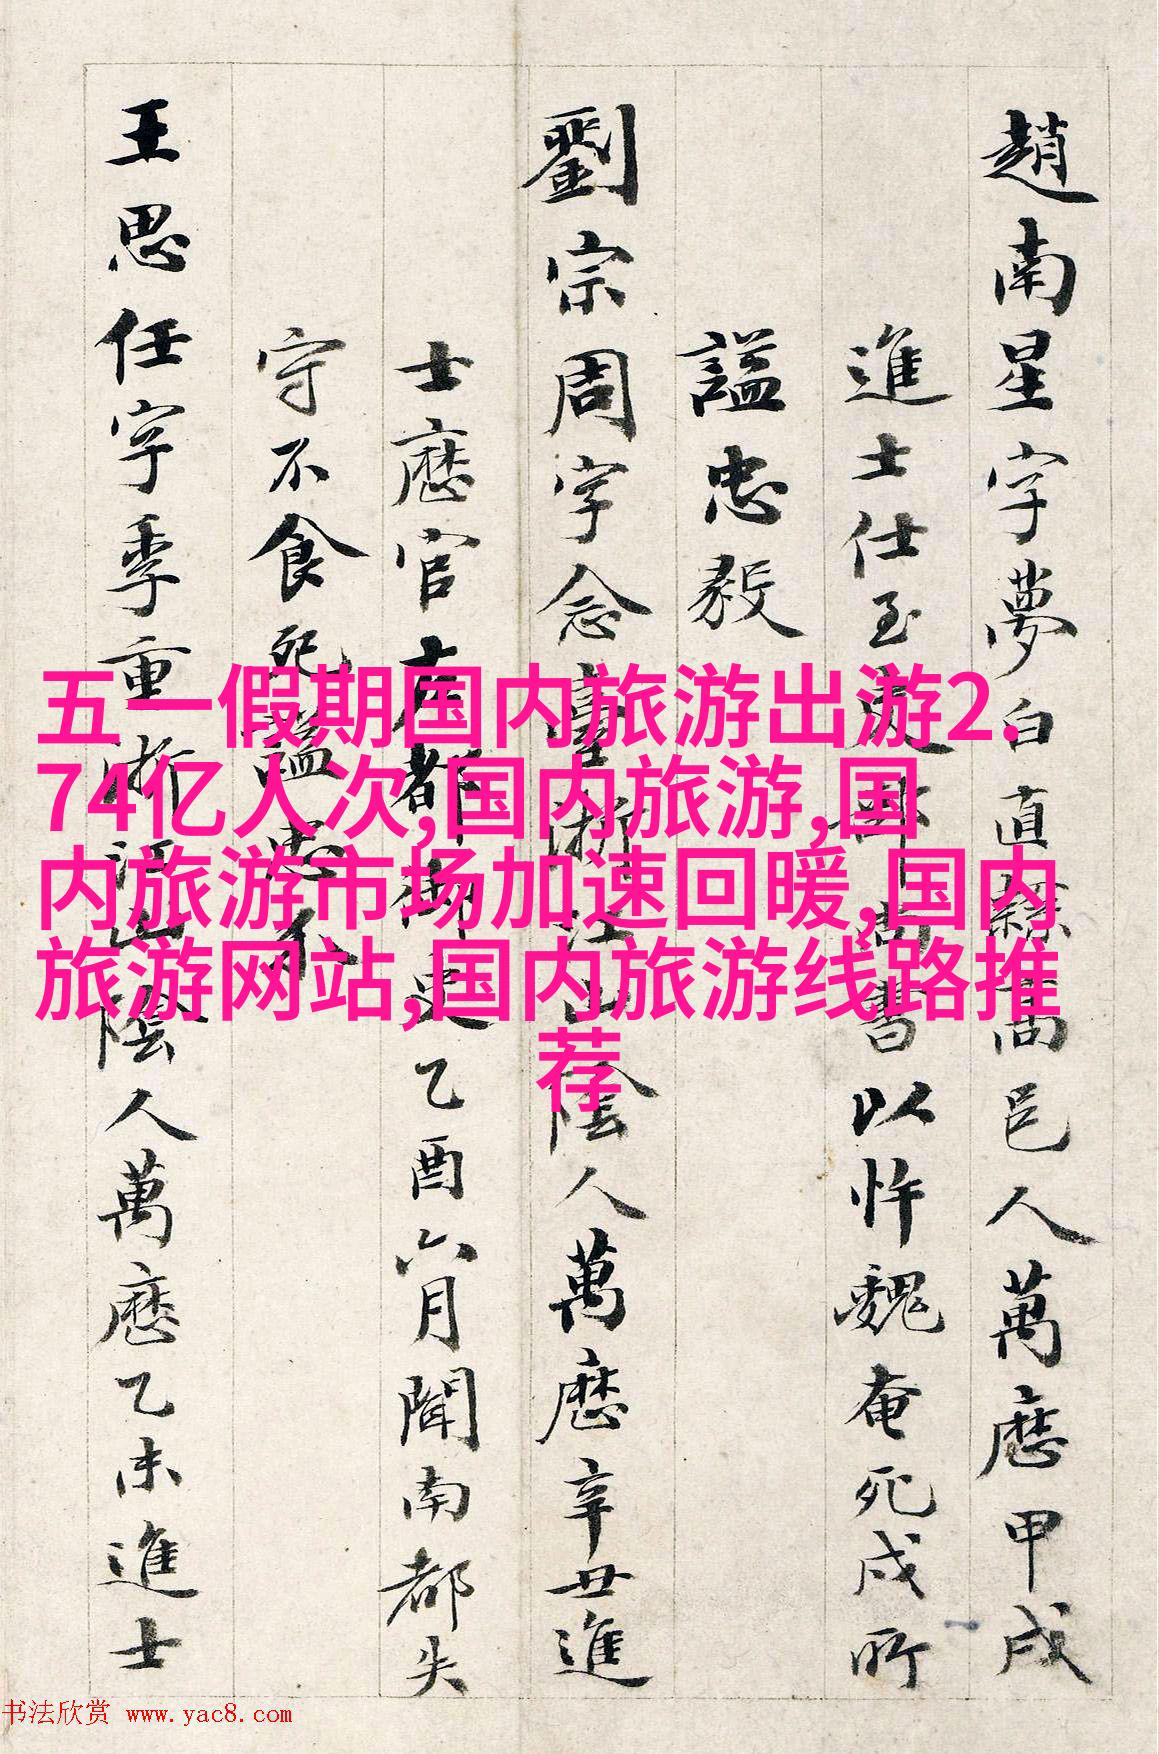 趙南星字夢白直隸高邑人萬曆甲戌
進士仕至吏部尚書以忤魏奄死戍所
謚忠毅
劉宗周字念臺浙江山陰人萬曆辛丑進
士歷官左都御史乙酉六月聞南都失
守不食死謚忠介
王思任字季重浙江山陰人萬曆乙未進士
五一假期国内旅游出游2.
74亿人次,国内旅游,国
内旅游市场加速回暖,国内
旅游网站,国内旅游线路推
荐
书法欣赏 www.yac8.com